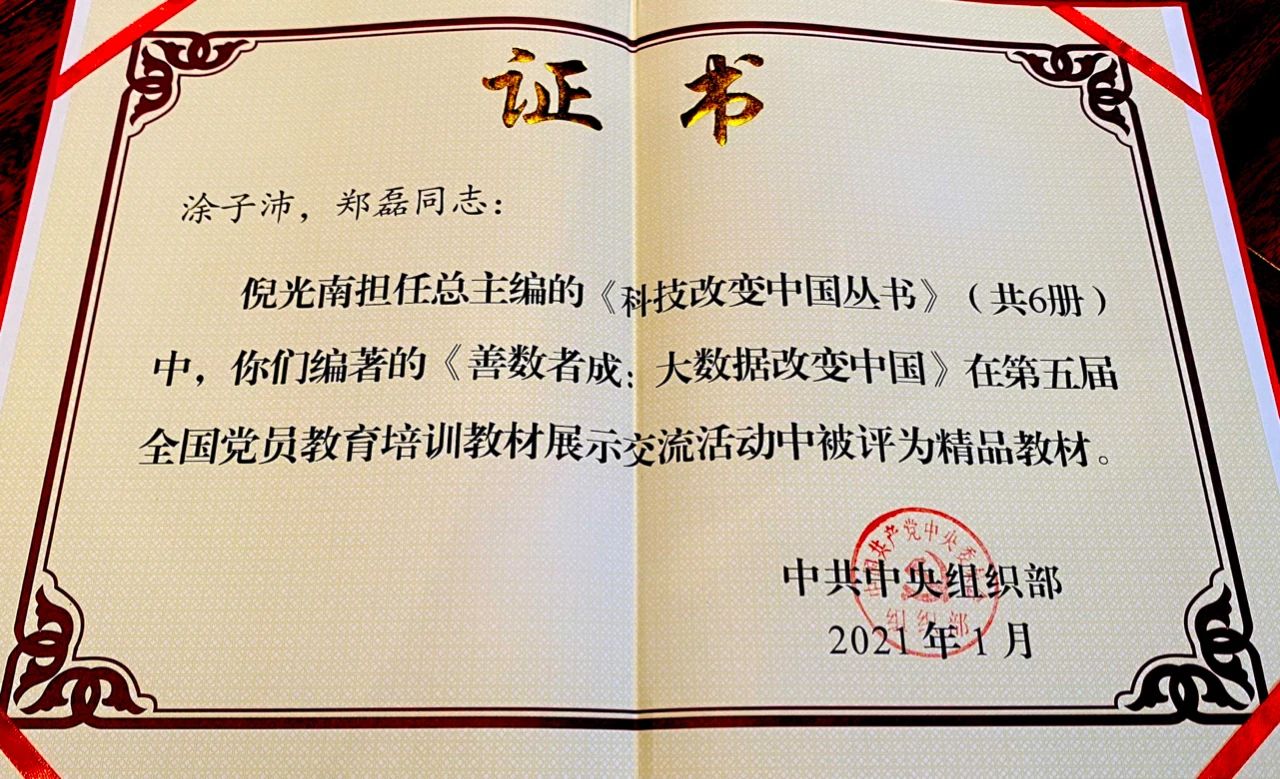 证书
涂子沛，郑磊同志：
倪光南担任总主编的《科技改变中国丛书》（共6册）
中，你们编著的《善数者成：大数据改变中国》在第五届
全国党员教育培训教材展示交流活动中被评为精品教材。
中共中央组织部
2021年1月
中国共产党中央委员会
组织部